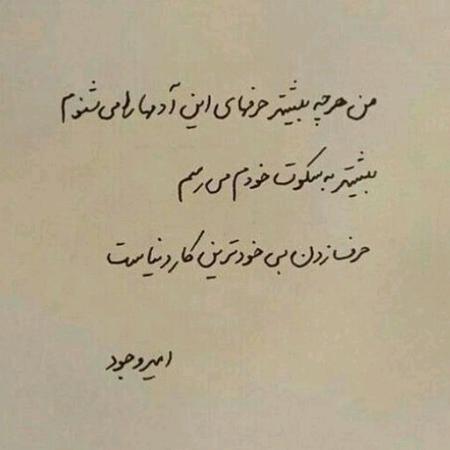 من هر چه بیشتر حرفهای این آدمها را می شنوم
بیشتر به سکوت خودم می رسم
حرف زدن بی خودترین کار دنیاست
امیر وجود